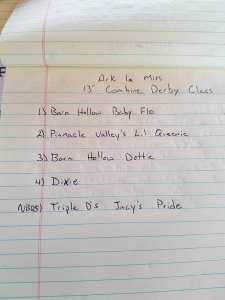 Ark la Miss
13" Combine Derby Class
1) Barn Hollow Baby Flo
2) Pinnacle Valley's Lil Queenie
3) Barn Hollow Dottie
4) Dixie
NBQ5) Triple D's Jacy's Pride